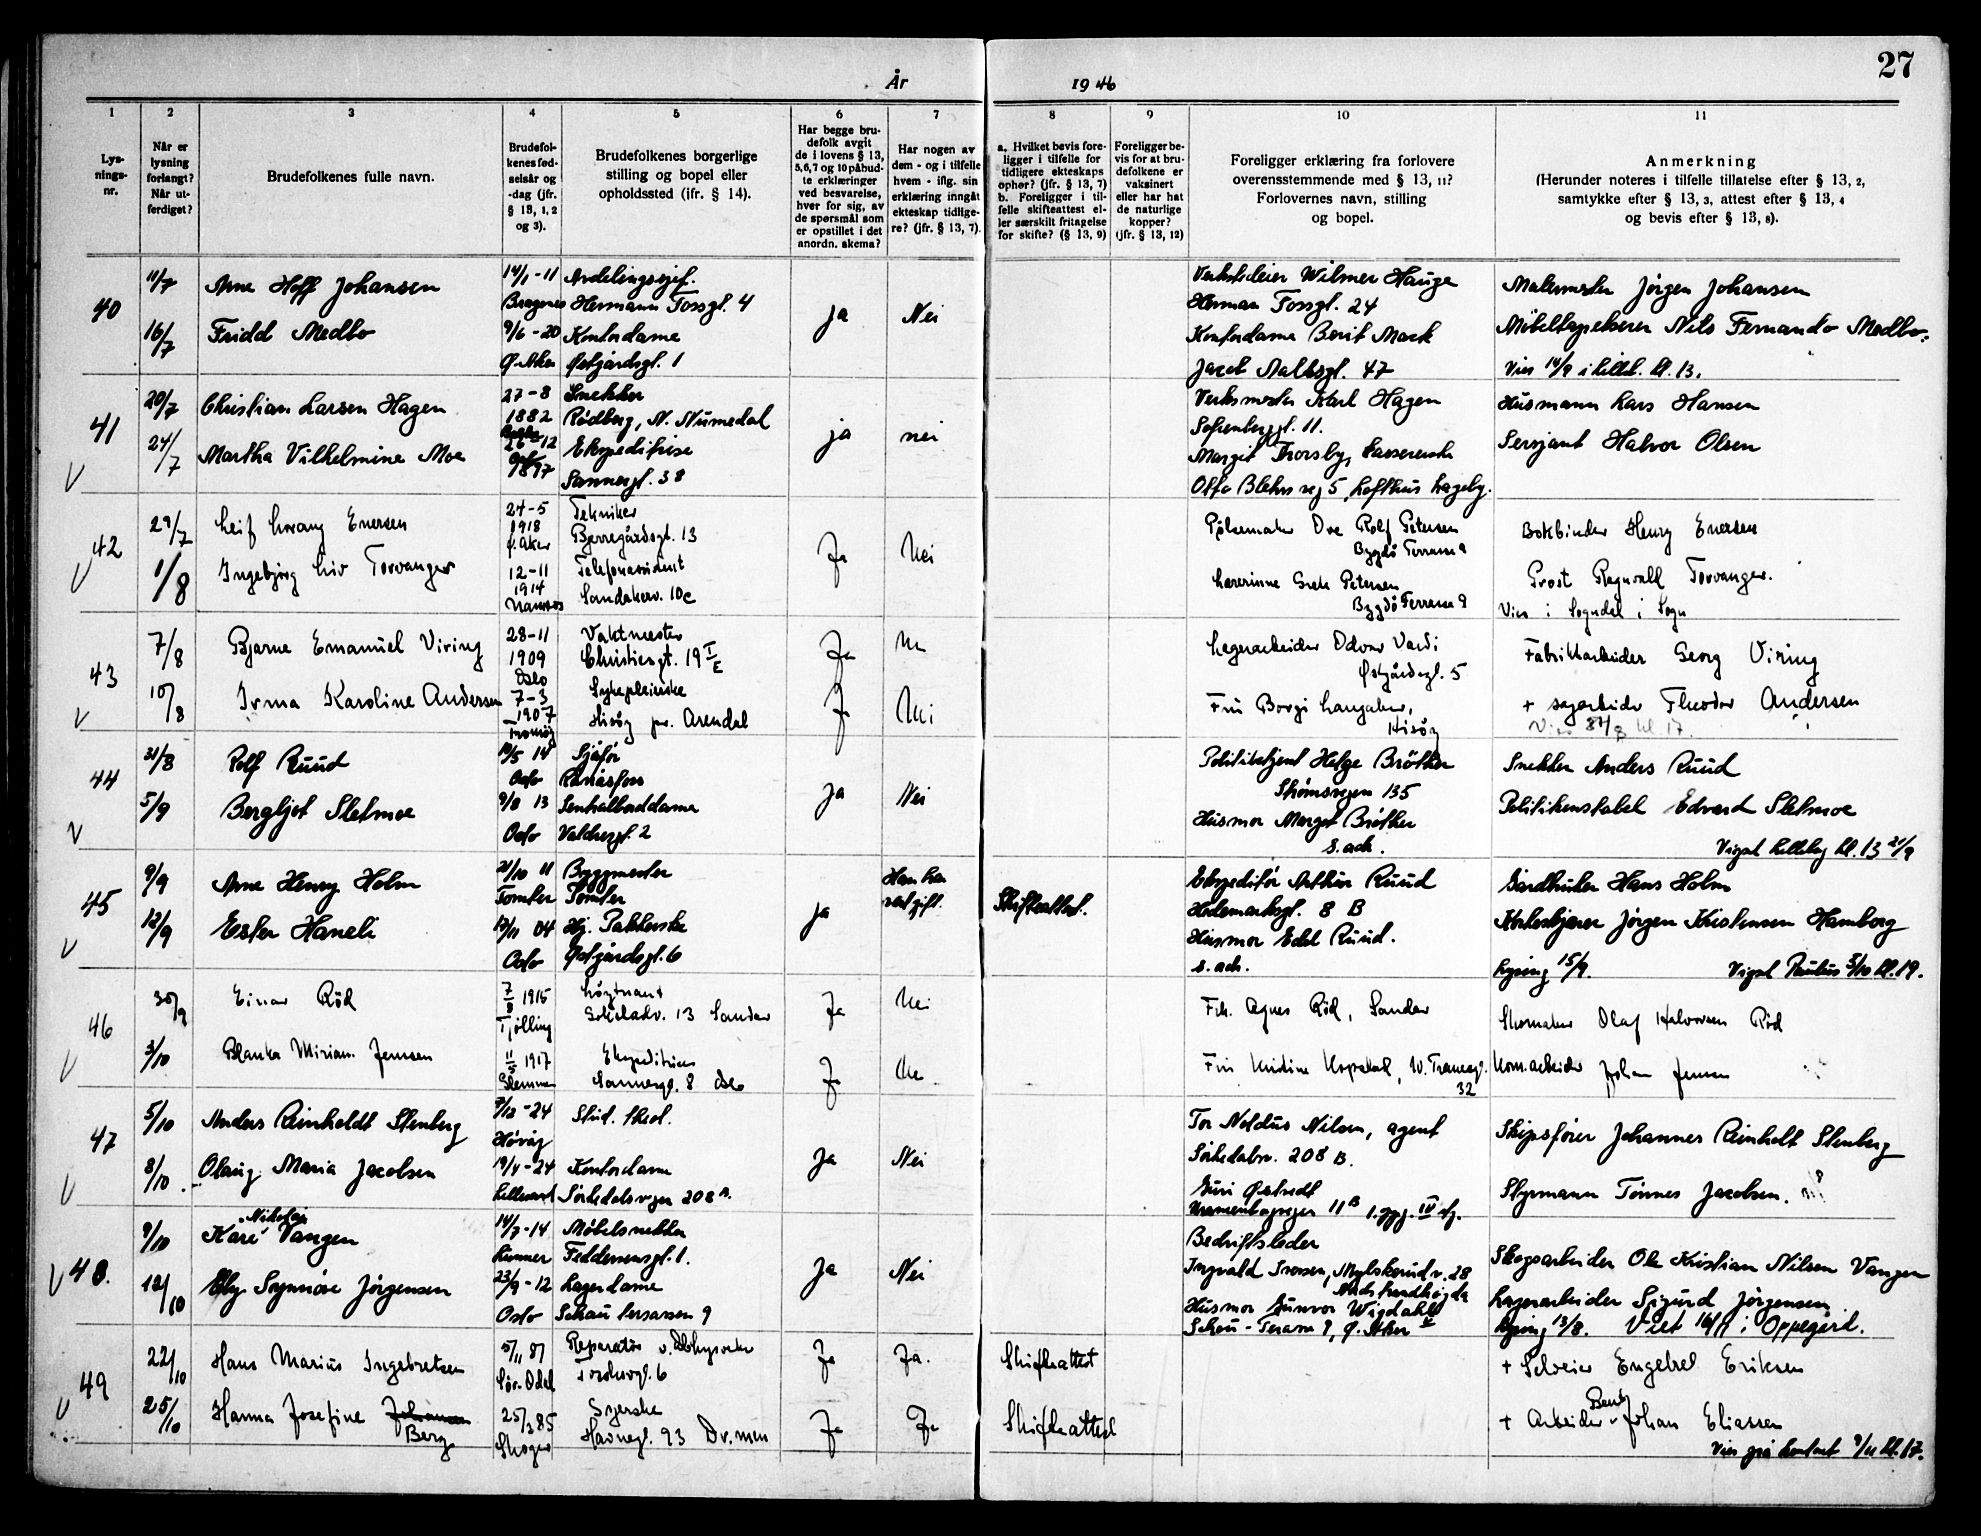 27
År 1946
1
2
3
4
5
6
7
8
9
10
11
Lys-
nings-
nr.
Når er
lysning
forlangt?
Når ut-
ferdiget?
Brudefolkenes fulle navn.
Brudefol-
kenes fød-
selsår og
-dag (jfr.
§ 13, 1, 2
og 3).
Brudefolkenes borgerlige
stilling og bopel eller
opholdssted (jfr. § 14).
Har begge bru-
defolk avgit
de i lovens § 13,
5,6,7 og 10 påbud-
te erklæringer
ved besvarelse,
hver for sig, av
de spørsmål som
er opstillet i det
anordn. skema?
Har nogen av
dem - og i tilfelle
hvem - iflg. sin
erklæring inngått
ekteskap tidlige-
re? (jfr. § 13, 7).
a. Hvilket bevis fore-
ligger i tilfelle for
tidligere ekteskaps
ophør? (jfr. § 13, 7)
b. Foreligger i til-
felle skifteattest el-
ler særskilt fritagelse
for skifte? (§ 13, 9)
Foreligger be-
vis for at bru-
defolkene er
vaksinert
eller har hat
de naturlige
kopper?
(jfr. § 13, 12)
Foreligger erklæring fra forlovere
overensstemmende med § 13, 11?
Forlovernes navn, stilling
og bopel.
Anmerkning
(Herunder noteres i tilfelle tillatelse efter § 13, 2,
samtykke efter § 13, 3, attest efter § 13, 4
og bevis efter § 13, 8).
40
11/7
16/7
Arne Hoff Johansen
Fridd Medbo
14/1-11
Bragenes
9/6-20
Ø. Aker
Avdelingssjef.
Hermann Fossgt. 4
Kontordame
Østgårdsgt. 1
Ja
Nei
Verkstedeier Wilmer Hauge
Herman Fossgt. 24
Kontordame Berit Mack
Jacob Aallsgt. 47
Malermester Jörgen Johansen
Möbeltapetserer Nils Fernando Medbo.
Vies 14/9 kl. 13.
41
20/7
24/7
Christian Larsen Hagen
Martha Vilhelmine Moe
27-8
1882
26-12
1897
Snekker
Rödberg, N. Numedal
Ekspeditrise
Sannergt. 38
ja
nei
Verksmester Karl Hagen
Sofienberggt. 11.
Margit Thorsby,
Otto Blehrs vej 5, Lofthus hageby.
Husmann Lars Hansen
Sersjant Halvor Olsen
42
29/7
1/8
Leif Lorang Enersen
Ingebjørg Liv Torvanger
24-5
1918
Ø. Aker
12-11
1914
Namsos
Tekniker
Bjerregårdsgt. 13
Telefonassistent
Sandakerv. 10c
Ja
Nei
Pølsemaker Ove Rolf Petersen
Bygdö Terrasse 9
Lærerinne Grete Petersen
Bygdö Terrasse 9
Bokbinder Henry Enersen
Prost Ragnvald Torvanger.
Vies i Sogndal i Sogn
43
7/8
10/8
Bjarne Emanuel Viring
Irma Karoline Andersen
28-11
1909
Oslo
7-3
1907
Tromöy
Vaktmester
Christiesgt. 19 I E
Sykepleierske
Hisöy pr. Arendal
Ja
Nei
Ja
Nei
Lagerarbeider Odvar Vardi
Østgårdsgt. 5
Fru Borgi Langaker,
Hisöy
Fabrikkarbeider Georg Viring
+ sagarbeider Theodor Andersen
kl 17.
44
31/8
5/9
Rolf Ruud
Bergljot Sletmoe
10/5 14
Oslo
9/8 13
Oslo
Sjåför
Rånåsfoss
Sentralborddame
Valdresgt. 2
Ja
Nei
Politibetjent Helge Bröther
Strömsvegen 135
Husmor Margot Bröther
s. ads.
Snekker Anders Ruud
Politikonstabel Edvard Sletmoe
Vigsel Lilleborg kl. 13 21/9
45
9/9
12/9
Arne Henry Holm
Ester Haneli
21/10 11
Tomter
12/11 04
Oslo
Byggmester
Tomter
Hj. Pakkerske
Østgårdsgt. 6
ja
Han har
vært gift.
Skifteattest.
Ekspeditör Arthur Ruud
Hedemarksgt. 8 B
Husmor Edel Ruud.
s. ads.
Gårdbruker Hans Holm
Kirkeskjener Jörgen Kristensen Hamborg
Lysing 15/9.
Vigsel Paulus 5/10 kl. 19.
46
30/9
3/10
Einar Röd
Blanka Miriam Jensen
7/8 1915
Tjölling
11/5 1917
Slemmen
Löytnant
13 Sandar
Ekspeditrise
Sannergt. 8 Oslo
Ja
Nei
Ja
Frk. Agnes Röd, Sandar
Fru Kristine
32
Skomaker Olaf Halvorsen Röd
Kom.arbeider Johan Jensen
47
5/10
8/10
Anders Reinholdt Stenberg
Olaug Maria Jacobsen
9/12-24
Hövåg
19/4-24
Lillesand
Stud. theol.
Kontordame
Sörkedalsvegen 208 B.
Ja
Nei
Tor Noldus Nilsen, agent
Sörkedalsv. 208 B.
Guri Østvedt
11 B 1. oppg. IV etg.
Skipsförer Johannes Reinholt Stenberg
Styrmann Tönnes Jacobsen.
48.
9/10
12/10
Nikolai
Kåre Vangen
Elly Synnöve Jörgensen
14/7-14
Lunner
23/9-12
Oslo
Möbelsnekker
Feddersensgt. 1.
Lagerdame
Schous terrassen 9
Ja
Nei
Bedriftsleder
Ingvald Iversen, Mylskerudv. 28
Nordstrandhögda
Husmor Gunvor Wigdahl
Schou-Terasse 9, Ø. Aker
Skogsarbeider Ole Kristian Nilsen Vangen
Lagerarbeider Sigurd Jörgensen
Lysing 13/8. Viet i Oppegård.
49
22/10
25/10
Hans Marius Ingebretsen
Hanna Josefine Johansen
Berg
5/11 87
Sör-Odal
25/3 85
Skoger
Reparatör v. Oslo lysverker
6
Syerske
Havnegt. 93 Dr.men
Ja
Ja.
Ja
Ja
Skifteattest
Skifteattest
+ Selveier Engebret Eriksen
Berg
+ Arbeider Johan Eliassen
Vies på kontoret 9/11 kl. 17.